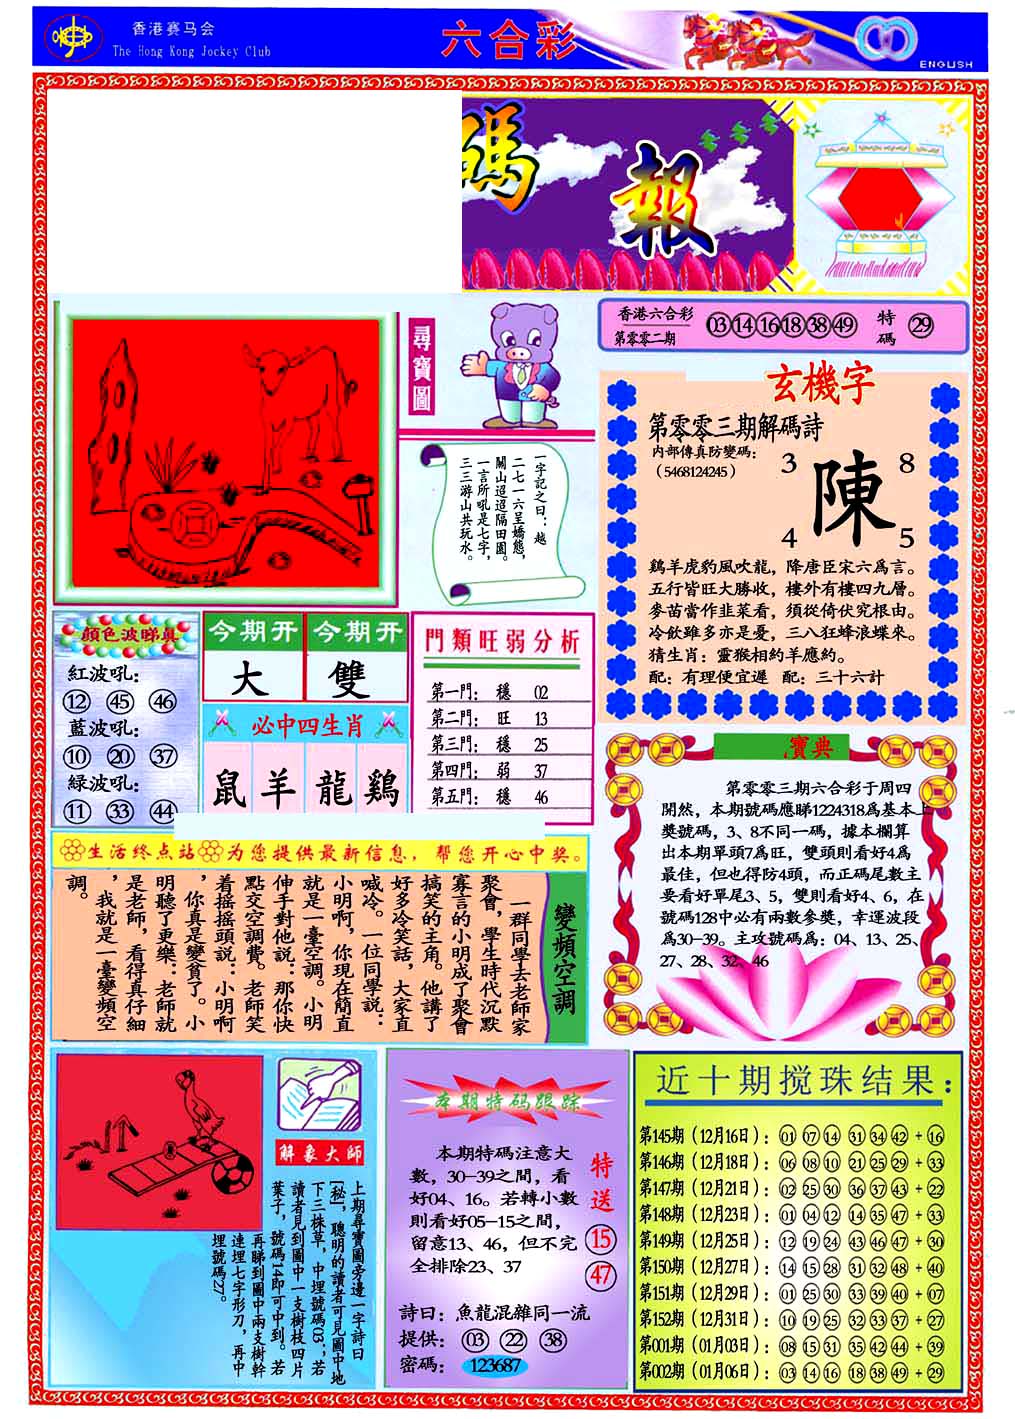 香港赛马会
The Hong Kong Jockey Club
六合彩
ENGLISH
碼報
尋寶圖
香港六合彩
第零零二期
03 14 16 18 38 49
特碼
29
一字記之曰：越
二七一六呈嬌態，
關山迢迢隔田園。
一言所吼是七字，
三三游山共玩水。
玄機字
第零零三期解碼詩
内部傳真防變碼：
（5468124245）
3 8
陳
4 5
鷄羊虎豹風吹龍，降唐臣宋六爲言。
五行皆旺大勝收，樓外有樓四九層。
麥苗當作韭菜看，須從倚伏究根由。
冷飲雖多亦是憂，三八狂蜂浪蝶來。
猜生肖：靈猴相約羊應約。
配：有理便宜遲 配：三十六計
顏色波睇真
紅波吼：
12 45 46
藍波吼：
10 20 37
緑波吼：
11 33 44
今期开 今期开
大 雙
必中四生肖
鼠 羊 龍 鷄
門類旺弱分析
第一門： 穩 02
第二門： 旺 13
第三門： 穩 25
第四門： 弱 37
第五門： 穩 46
寶典
第零零三期六合彩于周四
開然，本期號碼應睇1224318爲基本上
獎號碼，3、8不同一碼，據本欄算
出本期單頭7爲旺，雙頭則看好4爲
最佳，但也得防4頭，而正碼尾數主
要看好單尾3、5，雙則看好4、6，在
號碼128中必有兩數參獎，幸運波段
爲30-39。主攻號碼爲：04、13、25、
27、28、32、46
生活终点站 为您提供最新信息，帮您开心中奖。
變頻空調
一群同學去老師家
聚會，學生時代沉默
寡言的小明成了聚會
搞笑的主角。他講了
好多冷笑話，大家直
喊冷。一位同學説：
小明啊，你現在簡直
就是一臺空調。小明
伸手對他説：那你快
點交空調費。老師笑
着摇摇頭説：小明啊
，你真是變貧了。小
明聽了更樂：老師就
是老師，看得真仔細
，我就是一臺變頻空
調。
解象大师
上期尋寶圖旁邊一字詩曰
[秘]，聰明的讀者可見圖中地
下三株草，中埋號碼03；若
讀者見到圖中一支樹枝四片
葉子，號碼14即可中到。若
再睇到圖中兩支樹幹
連埋七字形刀，再中
埋號碼27。
本期特码跟踪
本期特碼注意大
數，30-39之間，看
好04、16。若轉小數
則看好05-15之間，
留意13、46，但不完
全排除23、37
特送
15
47
詩曰：魚龍混雜同一流
提供： 03 22 38
密碼： 123687
近十期搅珠结果：
第145期（12月16日）：01 07 14 31 34 42 + 16
第146期（12月18日）：06 08 10 21 25 29 + 33
第147期（12月21日）：02 25 30 36 37 43 + 22
第148期（12月23日）：01 04 12 14 35 47 + 33
第149期（12月25日）：12 19 24 43 46 47 + 30
第150期（12月27日）：14 15 28 31 32 48 + 40
第151期（12月29日）：01 25 30 33 39 40 + 07
第152期（12月31日）：10 19 25 32 33 37 + 27
第001期（01月03日）：08 15 31 35 42 44 + 39
第002期（01月06日）：03 14 16 18 38 49 + 29